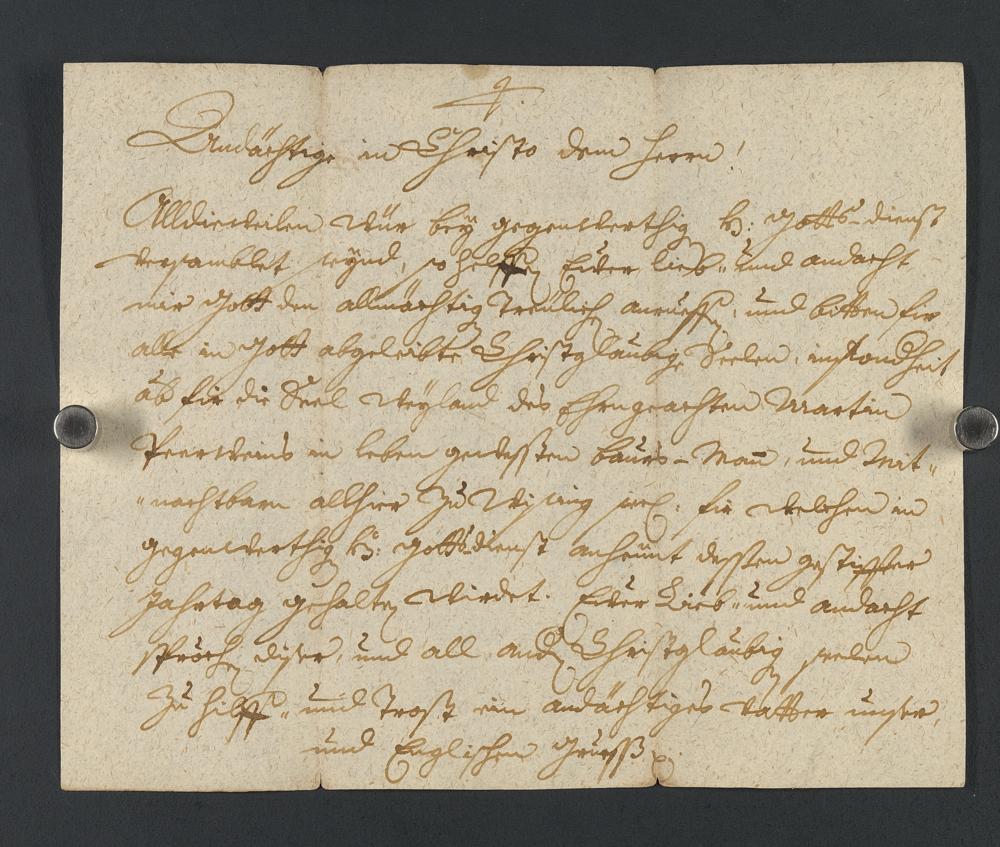 Andächtige in Christo dem Herrn!
Alldieweilen wür bey gegenwerthig h: Gotts-dienst
versamblet seynd, so helffen Euer lieb- und andacht
mir Gott den allmächtig treülich anrueffen, und bitten für
alle in Gott abgeleibte Christglaubige Seelen, insonderheit
ab für die Seel weyland des Ehrngeachten Martin
in leben gewesten baurs-Man, und Mit-
-nachtbarn allhier zu seel: für welchen in
gegenwerthig h: Gottsdienst anheünt dessen gestiffter
Jahrtag gehalten wirdet. Euer Lieb- und andacht
sprechen diser, und all andern Christglaubig seelen
zu hilff- und Trost ein andächtiges vatter unser,
und Englischen Grueß